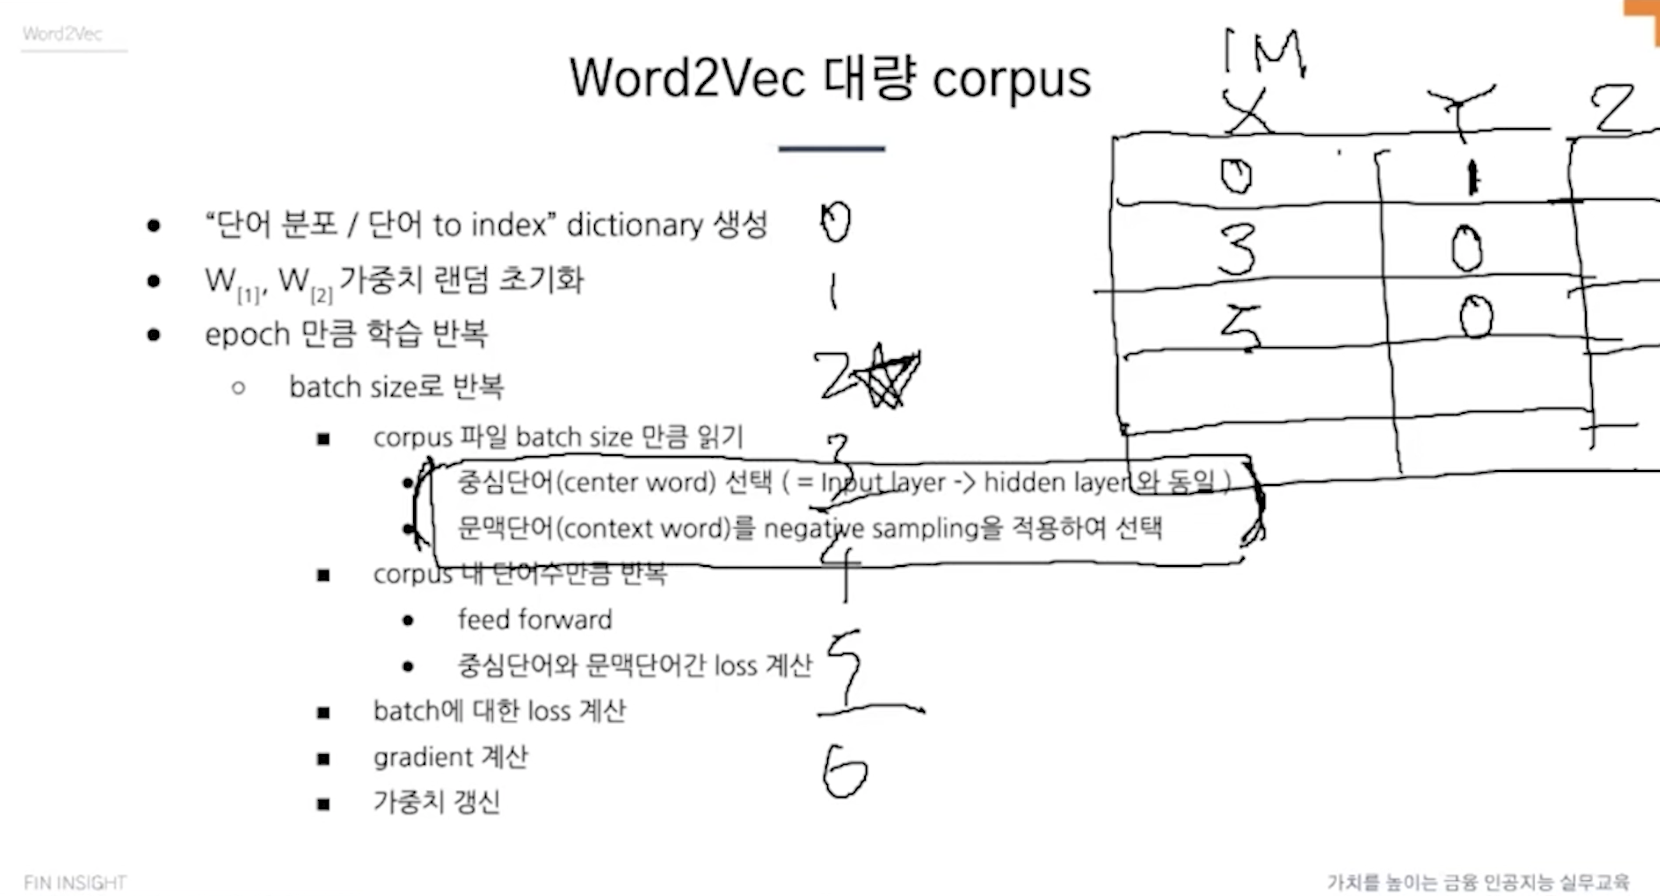 Word2Vec
Word2Vec 대량 corpus
1M
X Y 2
0 1
3 0
5 0
“단어 분포 / 단어 to index” dictionary 생성
0
W[1], W[2] 가중치 랜덤 초기화
1
epoch 만큼 학습 반복
batch size로 반복
2
corpus 파일 batch size 만큼 읽기
3
중심단어(center word) 선택 ( = Input layer -> hidden layer와 동일 )
문맥단어(context word)를 negative sampling을 적용하여 선택
4
corpus 내 단어수만큼 반복
feed forward
중심단어와 문맥단어간 loss 계산
5
batch에 대한 loss 계산
gradient 계산
6
가중치 갱신
FIN INSIGHT
가치를 높이는 금융 인공지능 실무교육